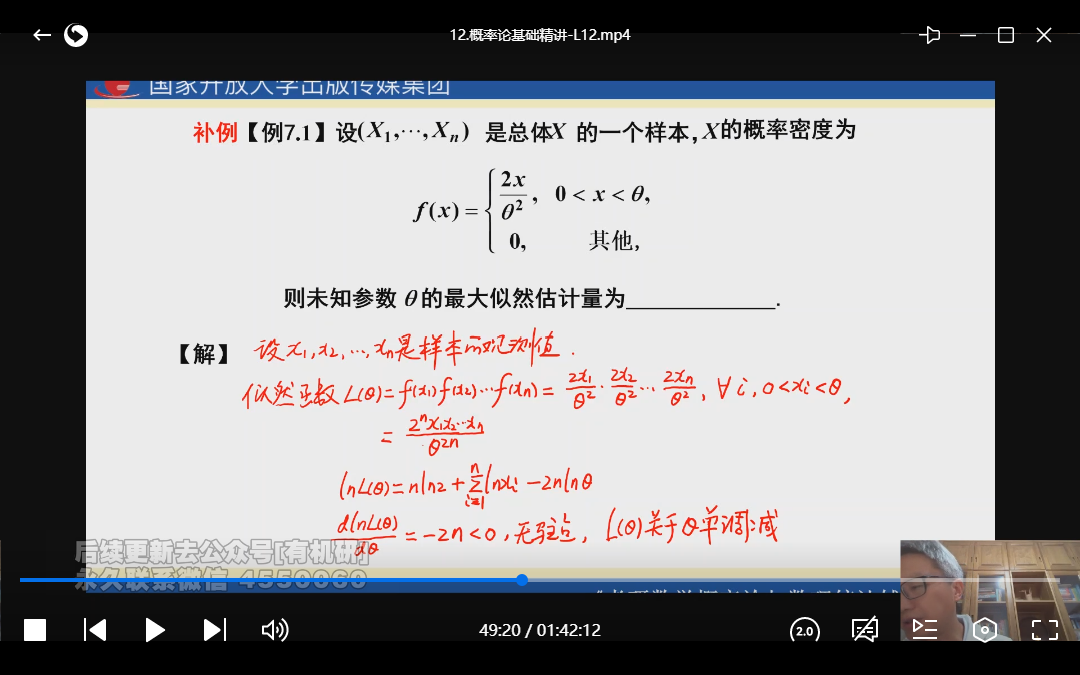 12.概率论基础精讲-L12.mp4
国家开放大学出版传媒集团
补例【例7.1】设(X₁,⋯,Xₙ) 是总体X 的一个样本,X的概率密度为
f(x)={ 2x/θ², 0<x<θ,
0, 其他,
则未知参数 θ的最大似然估计量为____________.
【解】 设x₁,x₂,⋯,xₙ是样本的观测值.
似然函数L(θ)=f(x₁)f(x₂)⋯f(xₙ)= 2x₁/θ² · 2x₂/θ² ⋯ 2xₙ/θ², ∀i, 0<xᵢ<θ,
= 2ⁿx₁x₂⋯xₙ/θ²ⁿ
lnL(θ)=nln2+∑ᵢ₌₁ⁿlnxᵢ-2nlnθ
dlnL(θ)/dθ =-2n<0,无驻点, L(θ)关于θ单调减
后续更新去公众号[有机研]
永久联系微信 4550060
49:20 / 01:42:12
2.0